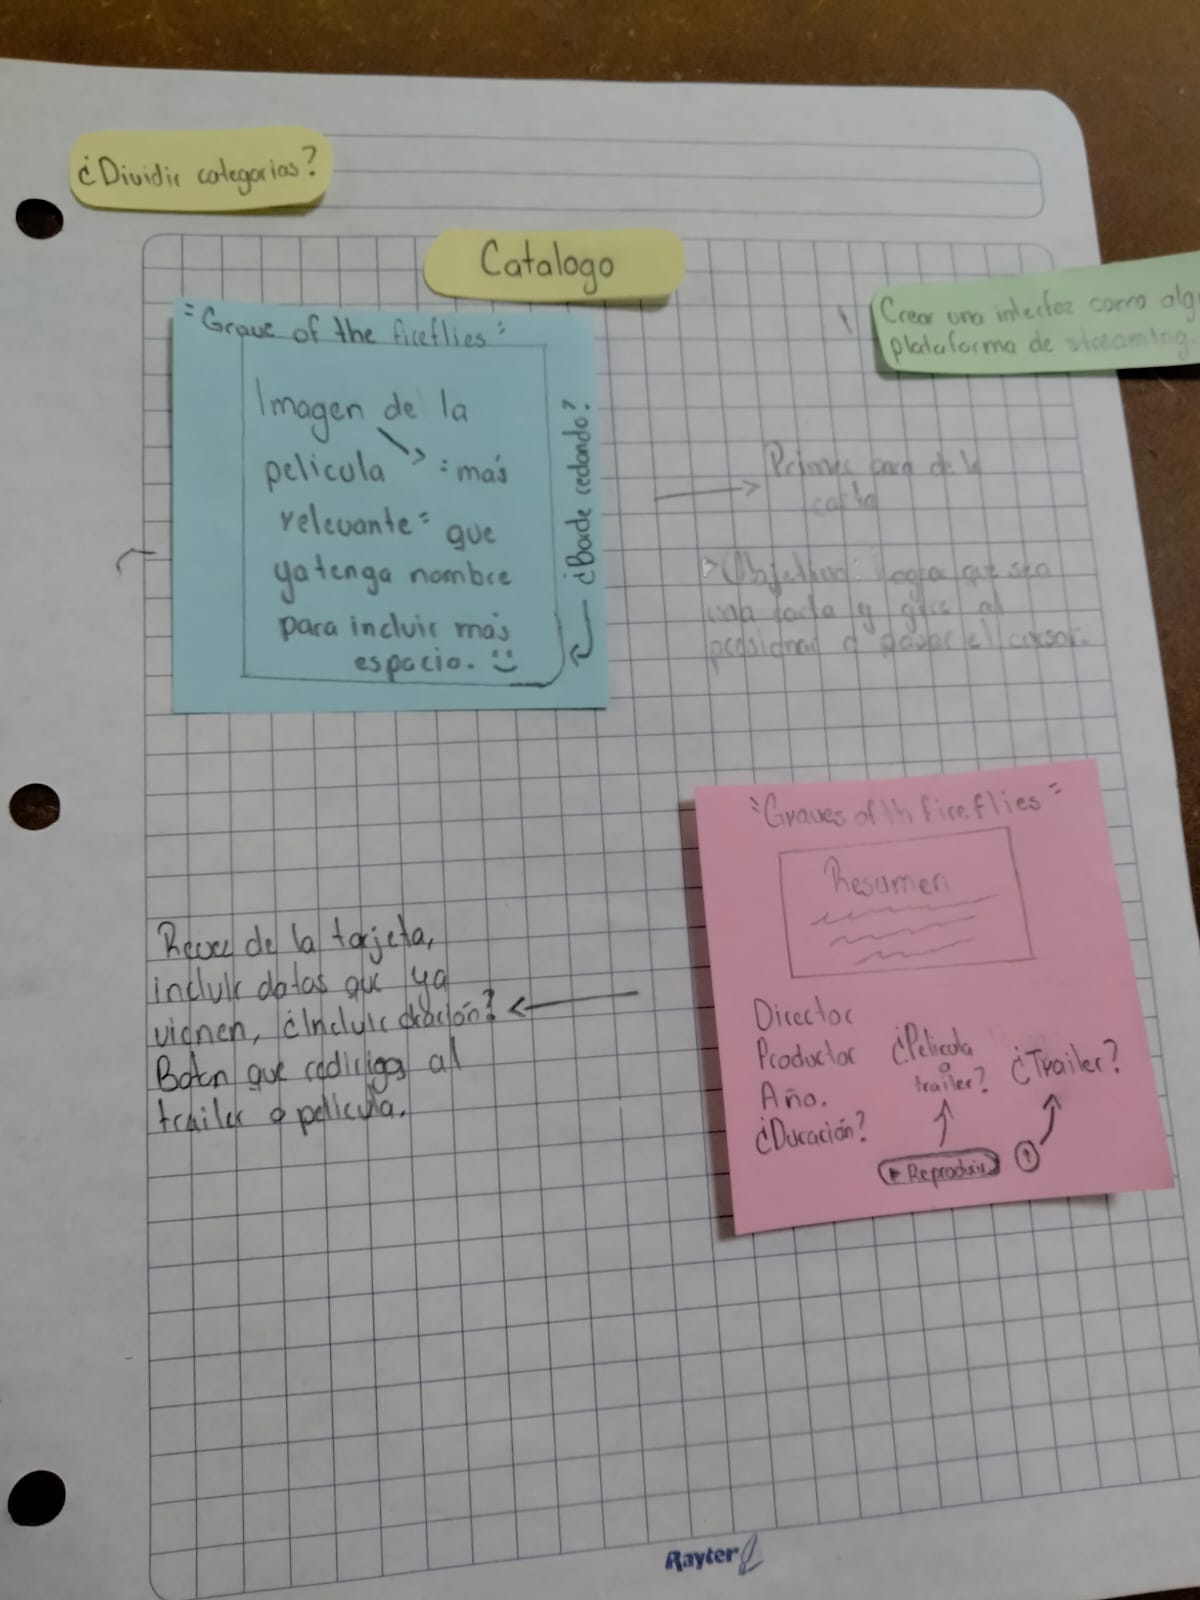 ¿Dividir categorias?
Catalogo
Crear una interfaz como alg
plataforma de streaming.
"Grave of the fireflies"
Imagen de la
pelicula =más
relevante= que
ya tenga nombre
para incluir más
espacio. :)
¿Borde redondo?
Primer cara de la
carta
Objetivo: lograr que sea
una carta y gire al
presionar o pasar el cursor.
"Graves of th fireflies"
Resumen
Director
Productor
Año.
¿Duración?
¿Pelicula
o
trailer?
¿Trailer?
▶ Reproducir
Rever de la tarjeta,
incluir datos que ya
vienen, ¿Incluir duración?
Boton que rediriga al
trailer o película.
Rayter